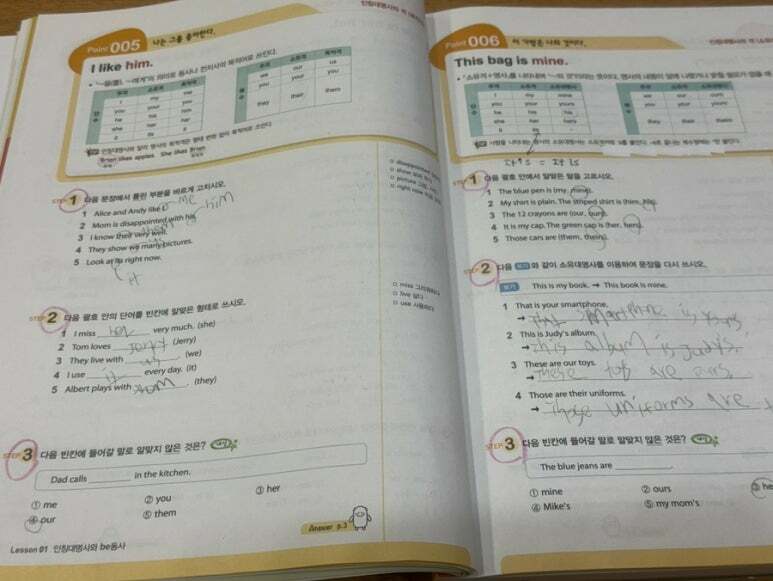 Point 005 나는 그를 좋아한다.
I like him.
주격 소유격 목적격
I my me
you your you
he his him
she her her
it its it
주격 소유격 목적격
we our us
you your you
they their them
Brian likes apples. She likes Brian
STEP 1 다음 문장에서 틀린 부분을 바르게 고치시오.
1 Alice and Andy like
me
2 Mom is disappointed with his
him
3 I know their very well.
them
4 They show we many pictures.
us
5 Look at its right now.
it
STEP 2 다음 괄호 안의 단어를 빈칸에 알맞은 형태로 쓰시오.
1 I miss her very much. (she)
2 Tom loves Jerry (Jerry)
3 They live with us (we)
4 I use it every day. (it)
5 Albert plays with (they)
STEP 3 다음 빈칸에 들어갈 말로 알맞지 않은 것은?
Dad calls in the kitchen.
① me ② you ③ her
④ our ⑤ them
Answer p.2
Lesson 01 인칭대명사와 be동사
miss
live 살다
use 사용하다
Point 006 이 가방은 나의 것이다.
This bag is mine.
I my mine
you your yours
he his his
she her hers
it its -
we our ours
you your yours
they their theirs
It's = It is
STEP 1 다음 괄호 안에서 알맞은 말을 고르시오.
1 The blue pen is (my, mine).
2 My shirt is plain. The striped shirt is (him, his).
3 The 12 crayons are (our, ours).
4 It is my cap. The green cap is (her, hers).
5 Those cars are (them, theirs).
STEP 2 다음 보기 와 같이 소유대명사를 이용하여 문장을 다시 쓰시오.
보기 This is my book. → This book is mine.
1 That is your smartphone.
→ That smartphone is yours
2 This is Judy's album.
→ This album is Judy's.
3 These are our toys.
→ These toys are ours.
4 Those are their uniforms.
→ Those uniforms are
STEP 3 다음 빈칸에 들어갈 말로 알맞지 않은 것은?
The blue jeans are
① mine ② ours ③ he
④ Mike's ⑤ my mom's